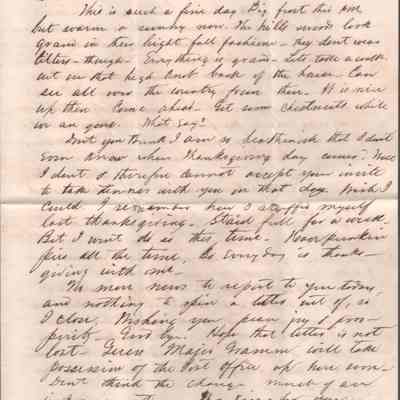 This is such a fine day. Big frost this am
but warm & sunny now. The hills & woods look
grand in their bright fall fashions - they dont wear
titters - though. Everything is grand - Lets take a walk
out on that high knob back of the house - Can
see all over the country from there. It is nice
up there Come ahead - Get some chestnuts while
we are gone. What say?
Dont you think I am so heathenish that I dont
even know when Thanksgiving day comes? Well
I dont & therefore cannot accept your invite
to take dinner with you on that day. Wish I
could. I remember how I stuffed myself
last thanksgiving - Staid full for a week.
But I wont do so this time. Have punkin
pies all the time, So every day is thanks-
giving with me.
No more news to report to you today
and nothing to spin a letter out of, so
I close, Wishing you peace joy & pros-
perity - Good bye. Hope that letter is not
lost - Guess Major Gramm will take
possession of the Post Office up here soon -
Dont think the change much of an